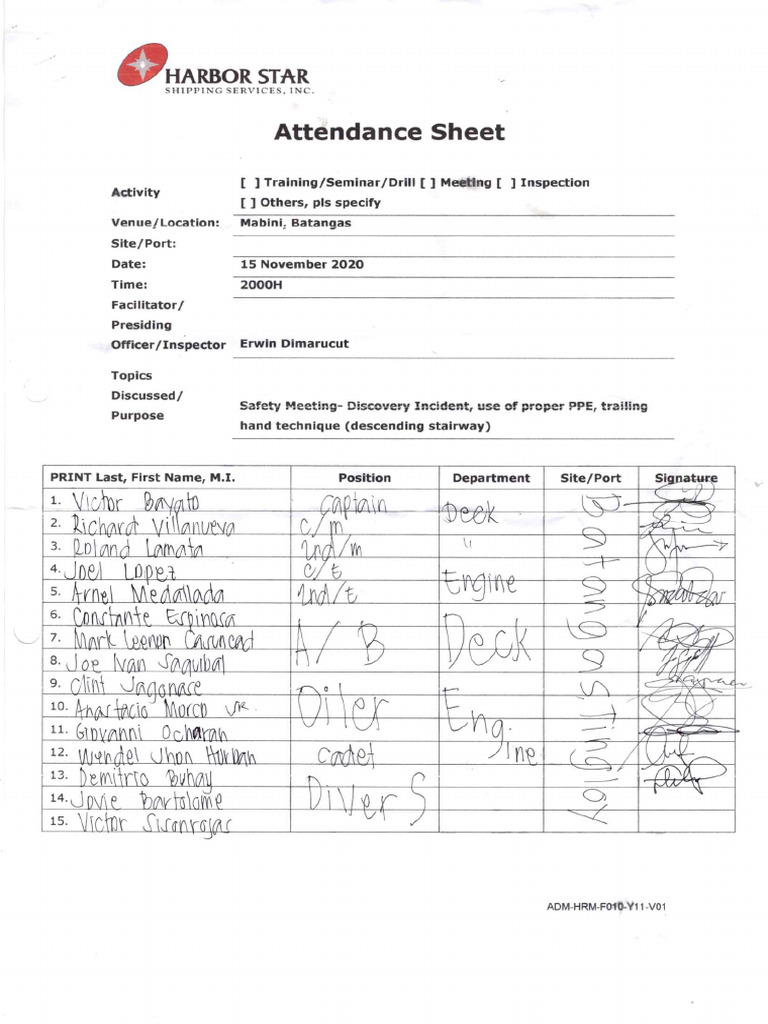 HARBOR STAR
SHIPPING SERVICES, INC.
Attendance Sheet
Activity [ ] Training/Seminar/Drill [ ] Meeting [ ] Inspection
[ ] Others, pls specify
Venue/Location: Mabini, Batangas
Site/Port:
Date: 15 November 2020
Time: 2000H
Facilitator/
Presiding
Officer/Inspector Erwin Dimarucut
Topics
Discussed/
Purpose
Safety Meeting- Discovery Incident, use of proper PPE, trailing
hand technique (descending stairway)
PRINT Last, First Name, M.I. Position Department Site/Port Signature
1. Victor Bayato Captain Deck
2. Richard Villanueva c/m
3. Roland Lamata 2nd/m "
4. Joel Lopez c/E
5. Arnel Medallada 2nd/E Engine
6. Constante Espinosa
7. Mark Leenon A/B Deck
8. Joe Ivan Saquibal
9. Clint Jagonase
10. Anastacio Morco JR. Oiler Engine
11. Giovanni Ocharan
12. Wendel Jhon cadet
13. Demitrio Buhay
14. Jovie Bartolome DiverS
15. Victor
Batangas
ADM-HRM-F010-Y11-V01